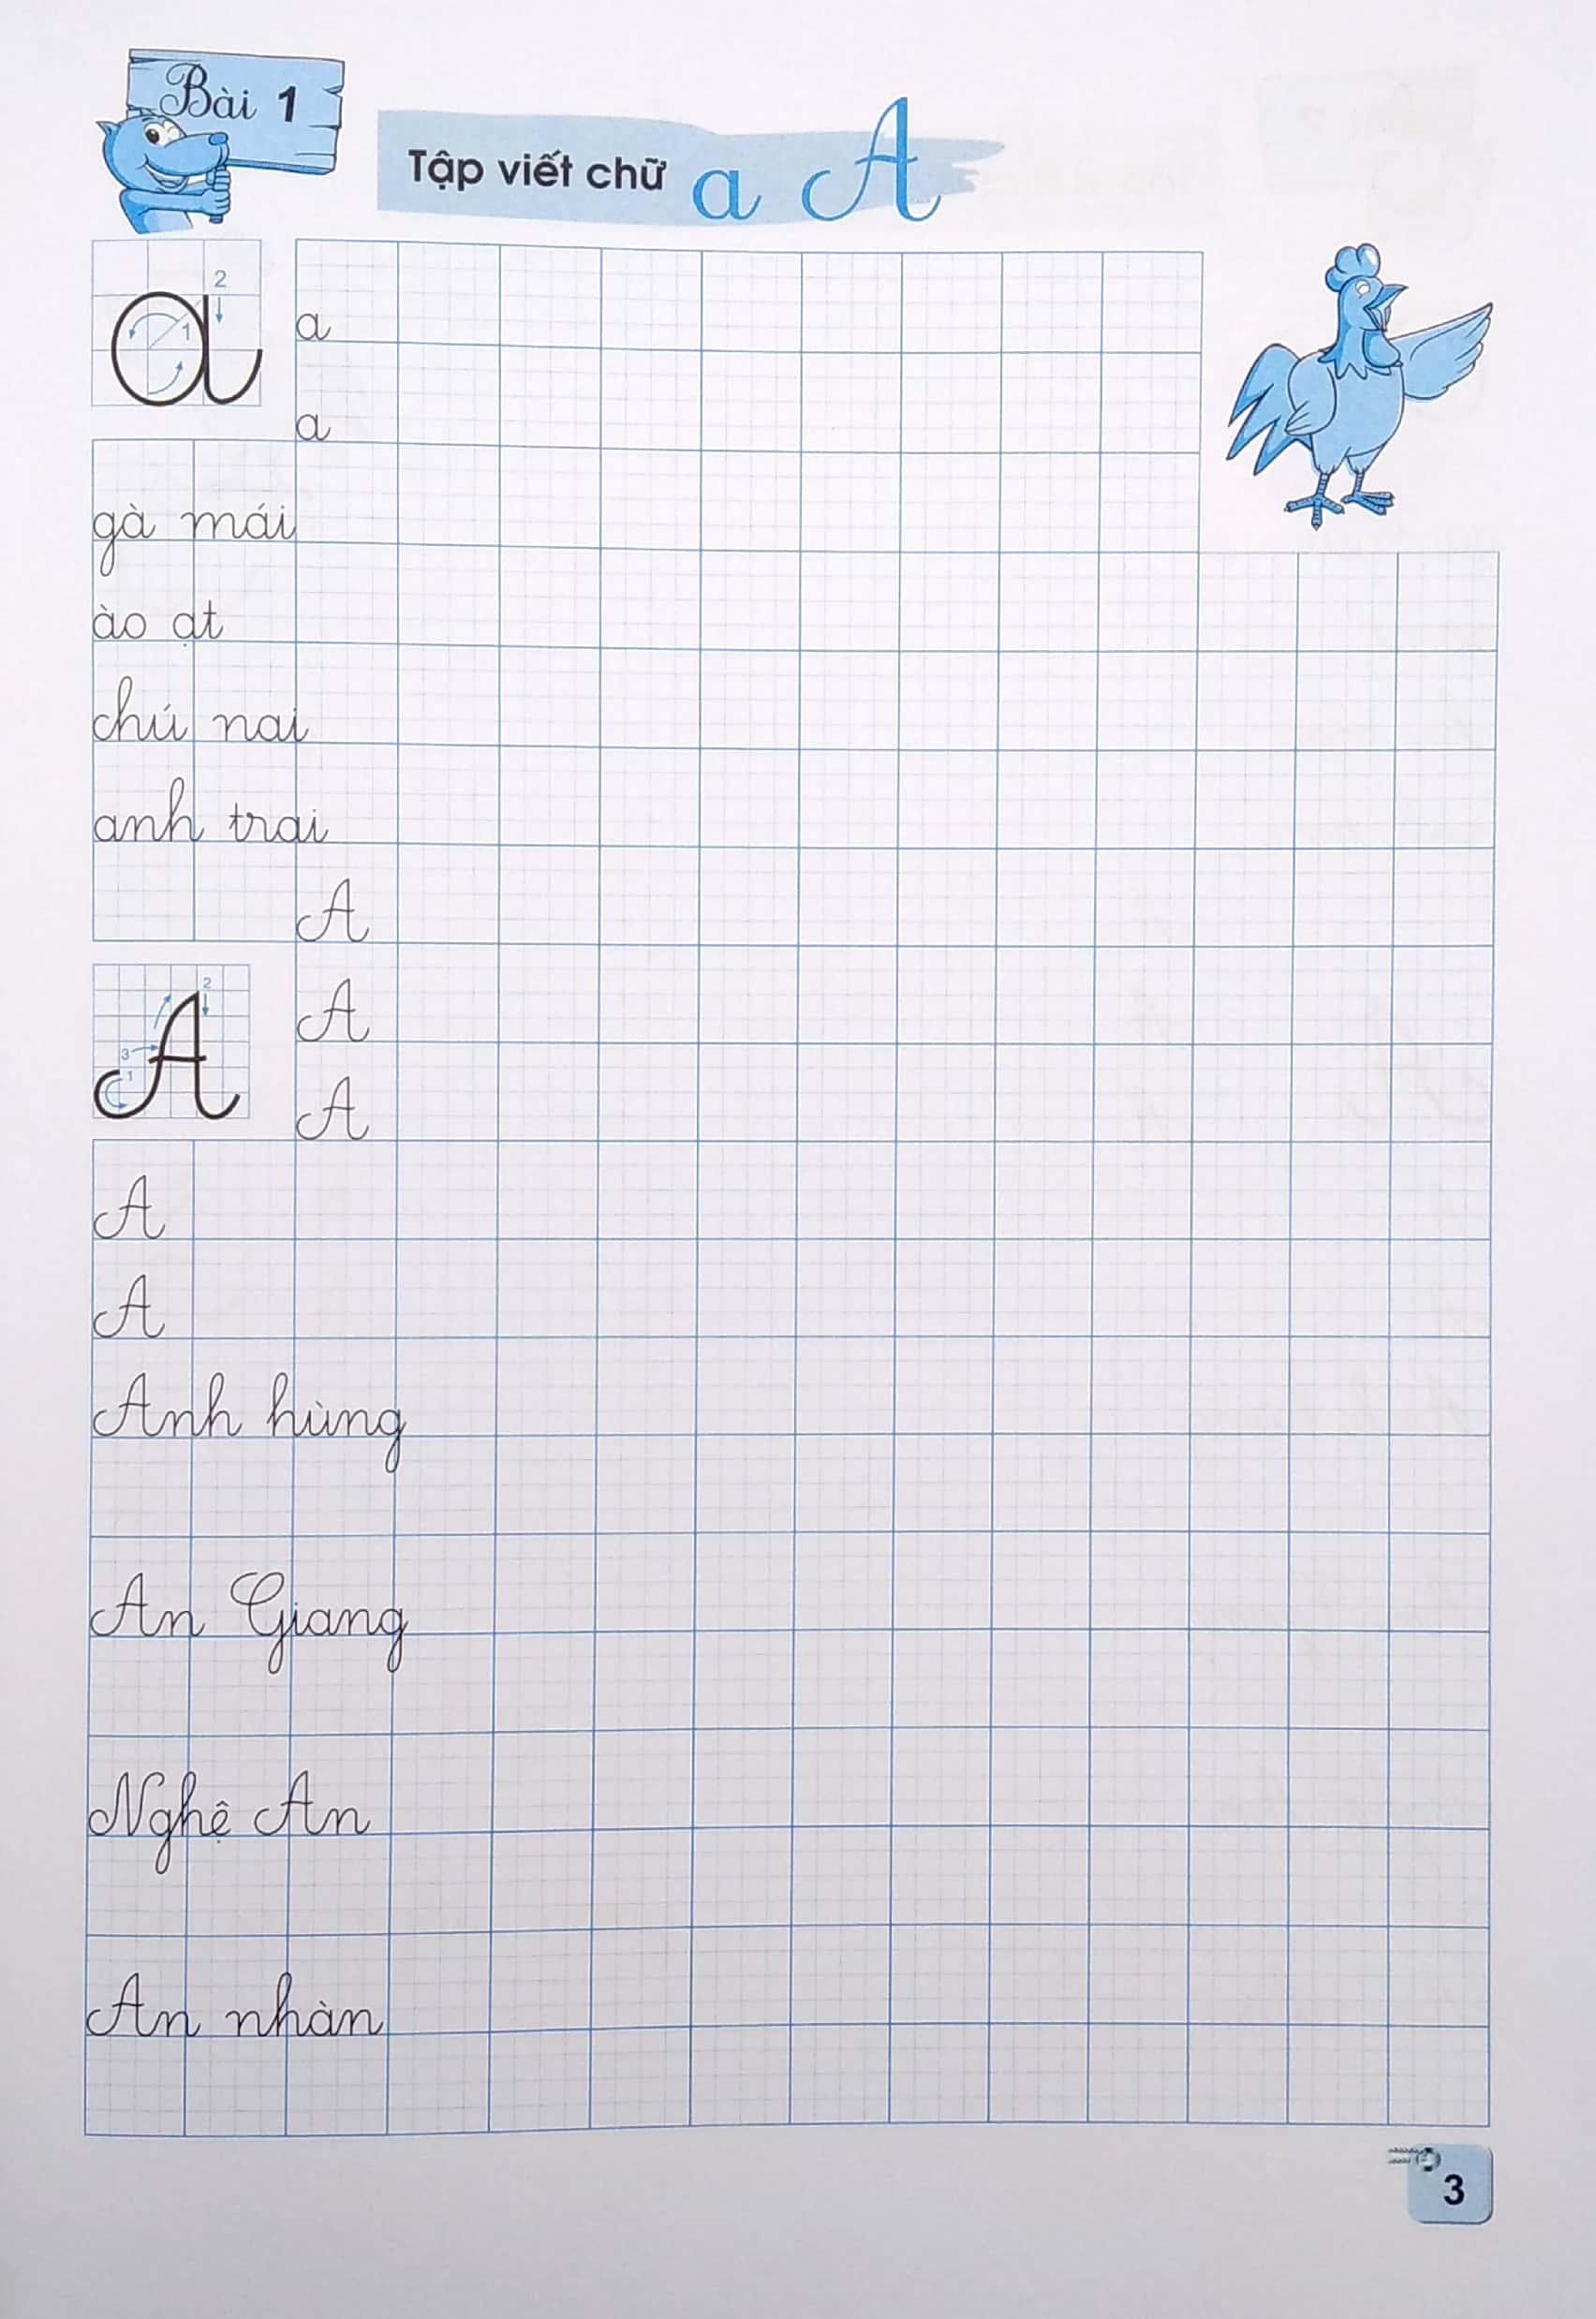 Bài 1
Tập viết chữ a A
2
1
a
a
gà mái
ào ạt
chú nai
anh trai
A
2
3
1
A
A
A
A
Anh hùng
An Giang
Nghệ An
An nhàn
3